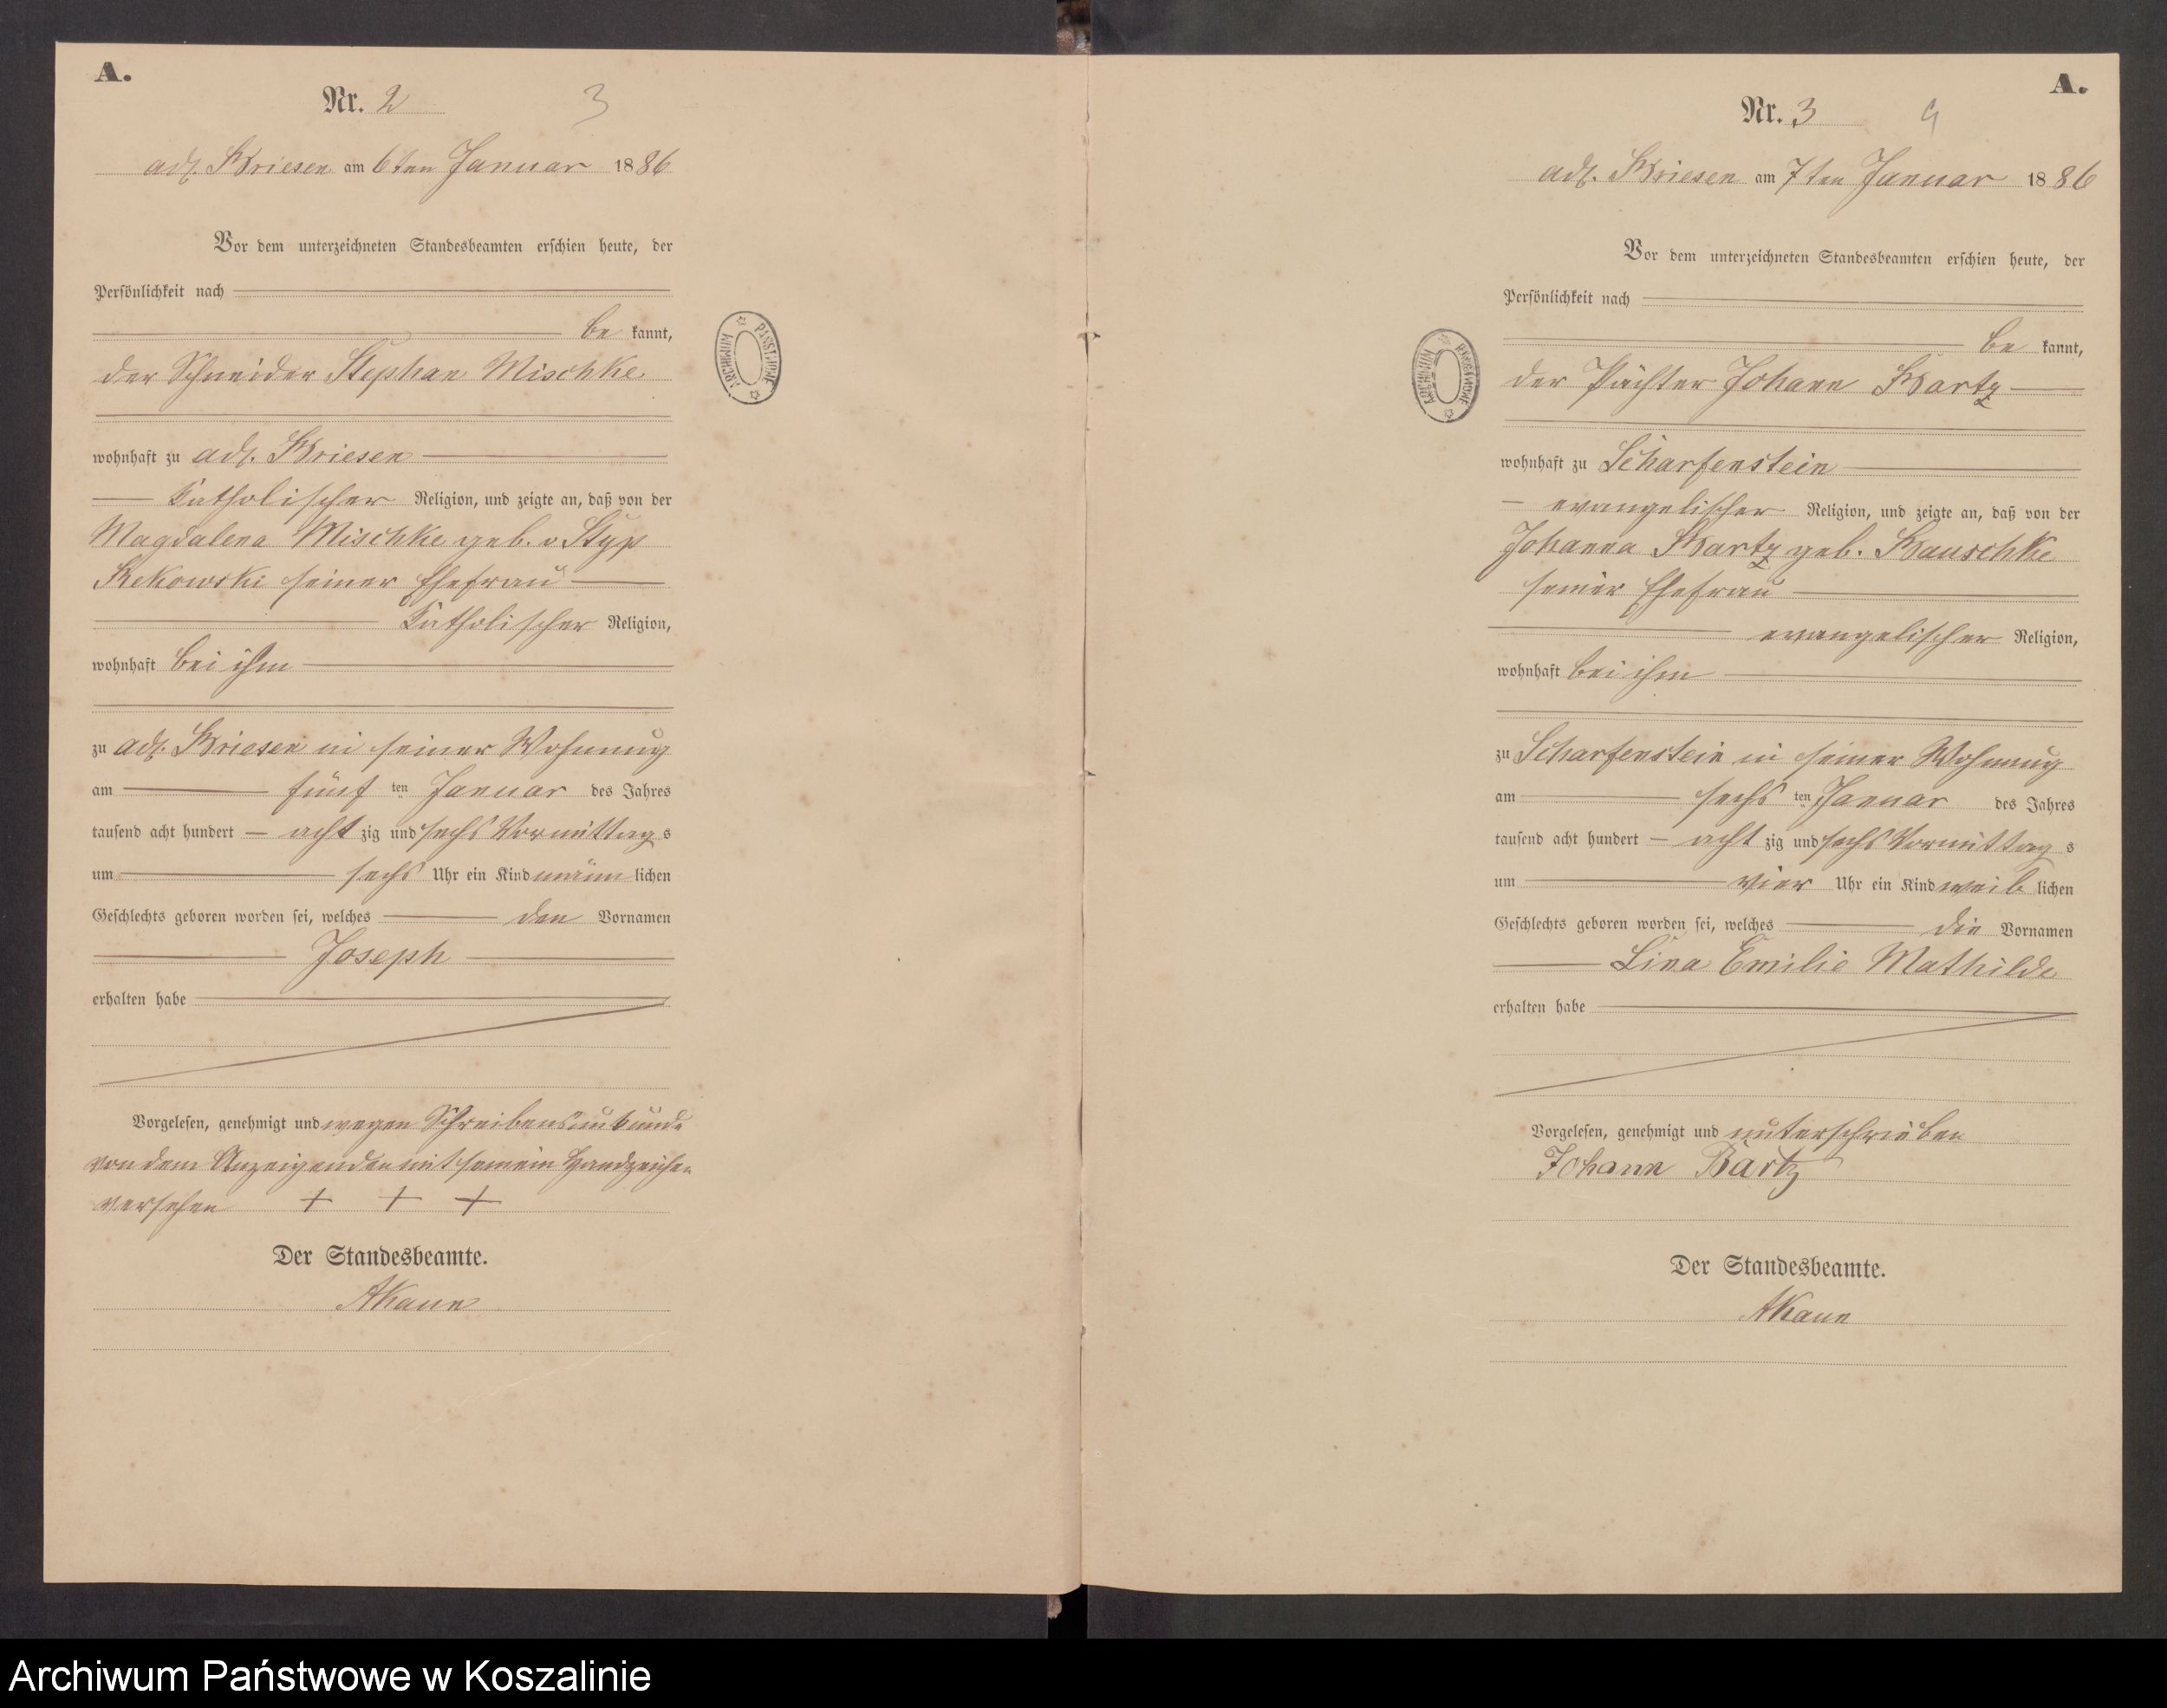 A.
Nr. 2
3
adl. Briesen am 6ten Januar 1886
Vor dem unterzeichneten Standesbeamten erschien heute, der
Persönlichkeit nach
be kannt,
der Schneider Stephan Mischke
wohnhaft zu adl. Briesen
katholischer Religion, und zeigte an, daß von der
Magdalena Mischke geb. v Styp
Rekowski seiner Ehefrau
katholischer Religion,
wohnhaft bei ihm
zu adl. Briesen in seiner Wohnung
am fünf ten Januar des Jahres
tausend acht hundert acht zig und sechs Vormittag s
um sechs Uhr ein Kind männ lichen
Geschlechts geboren worden sei, welches den Vornamen
Joseph
erhalten habe
Vorgelesen, genehmigt und wegen Schreibensunkunde
von dem Anzeigenden mit seinem Handzeichen
versehen + + +
Der Standesbeamte.
ARCHIWUM PAŃSTWOWE
A.
Nr. 3
4
adl. Briesen am 7ten Januar 1886
Vor dem unterzeichneten Standesbeamten erschien heute, der
Persönlichkeit nach
be kannt,
der Pächter Johann Bartz
wohnhaft zu Scharfenstein
evangelischer Religion, und zeigte an, daß von der
Johanna Bartz geb. Bauschke
seiner Ehefrau
evangelischer Religion,
wohnhaft bei ihm
zu Scharfenstein in seiner Wohnung
am sechs ten Januar des Jahres
tausend acht hundert acht zig und sechs Vormittag s
um vier Uhr ein Kind weib lichen
Geschlechts geboren worden sei, welches die Vornamen
Lina Emilie Mathilde
erhalten habe
Vorgelesen, genehmigt und unterschrieben
Johann Bartz
Der Standesbeamte.
ARCHIWUM PAŃSTWOWE
Archiwum Państwowe w Koszalinie